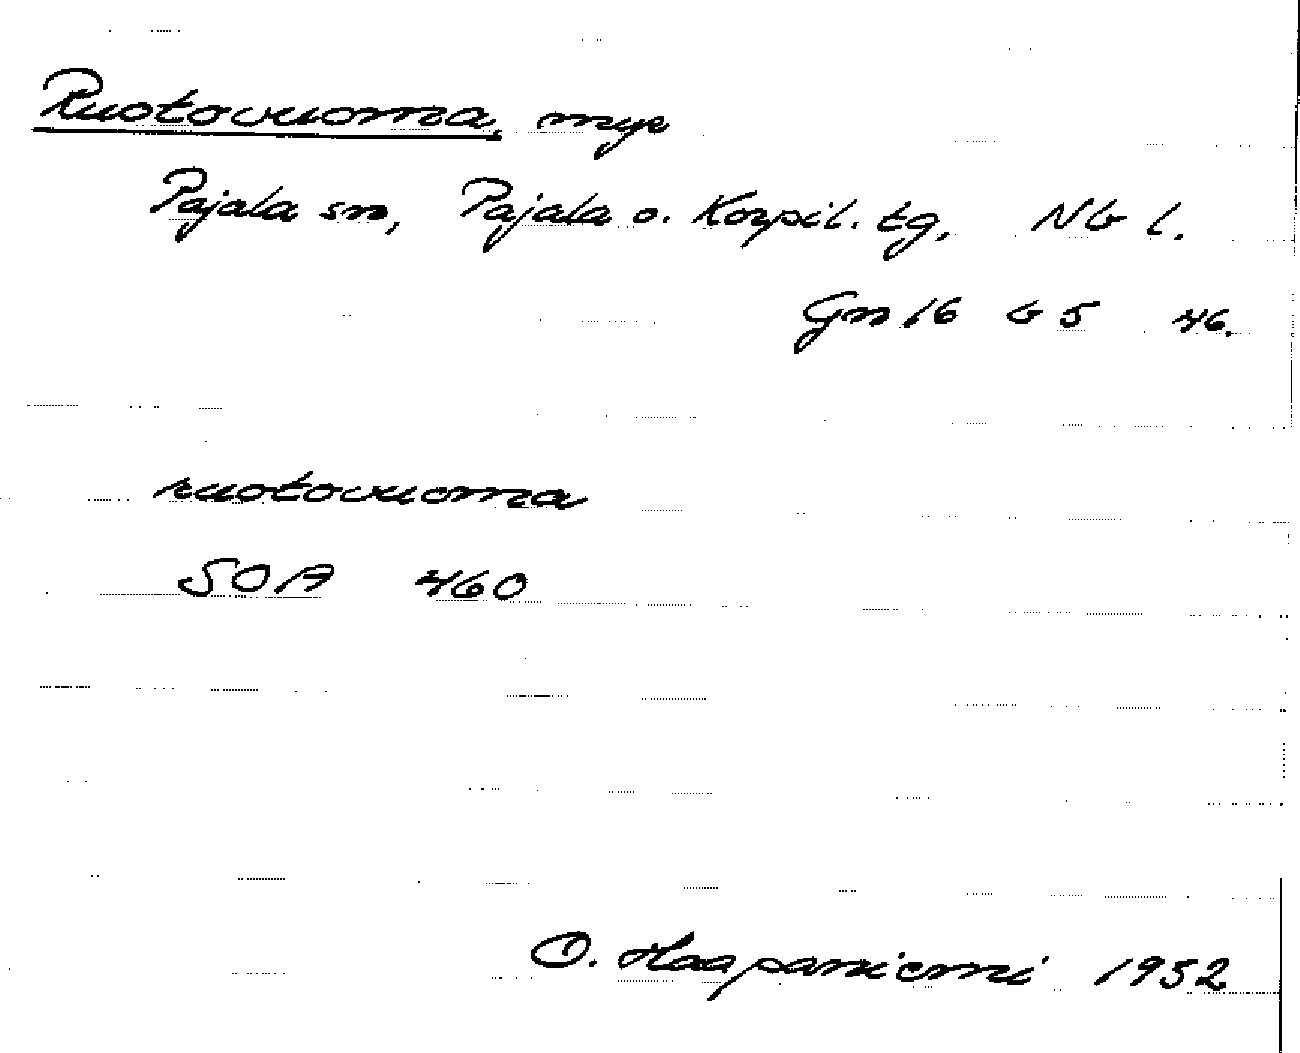 Ruotovuoma, myr
Pajala sn, Pajala o. Korpil. tg, Nb l.
Gn 16 b 5 46.
ruotovuoma
SOA 460
O. Haapaniemi 1952